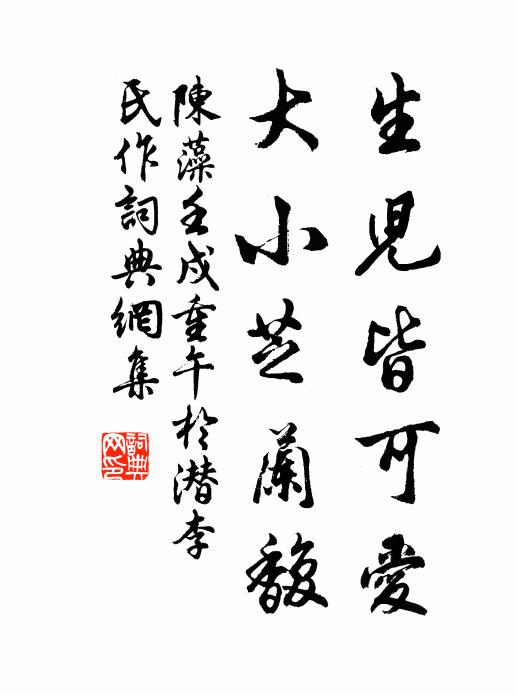 生児皆可愛
大小芝蘭馥
陳藻壬戌重午於潛李
氏作詞典網集
詞典
网印